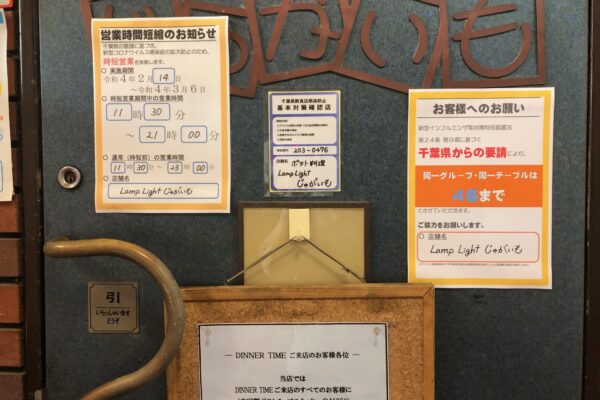 じゃがいも
営業時間短縮のお知らせ
千葉県の要請に基づき、
新型コロナウイルス感染症の拡大防止のため、
時短営業を実施します。
○ 実施期間
令和4年2月14日
～令和4年3月6日
○ 時短営業期間中の営業時間
11時30分
～21時00分
○ 通常（時短前）の営業時間
11時30分～23時00分
○ 店舗名
Lamp Light じゃがいも
千葉県飲食店感染防止
基本対策確認店
203-0476
ポテト料理
Lamp Light
じゃがいも
お客様へのお願い
新型インフルエンザ等対策特別措置法
第24条 第9項に基づく
千葉県からの要請により、
同一グループ・同一テーブルは
4名まで
とさせていただきます。
ご協力をお願いします。
○ 店舗名
Lamp Light じゃがいも
引
いらっしゃいませ
どうぞ
― DINNER TIME ご来店のお客様各位 ―
当店では
DINNER TIME ご来店のすべてのお客様に